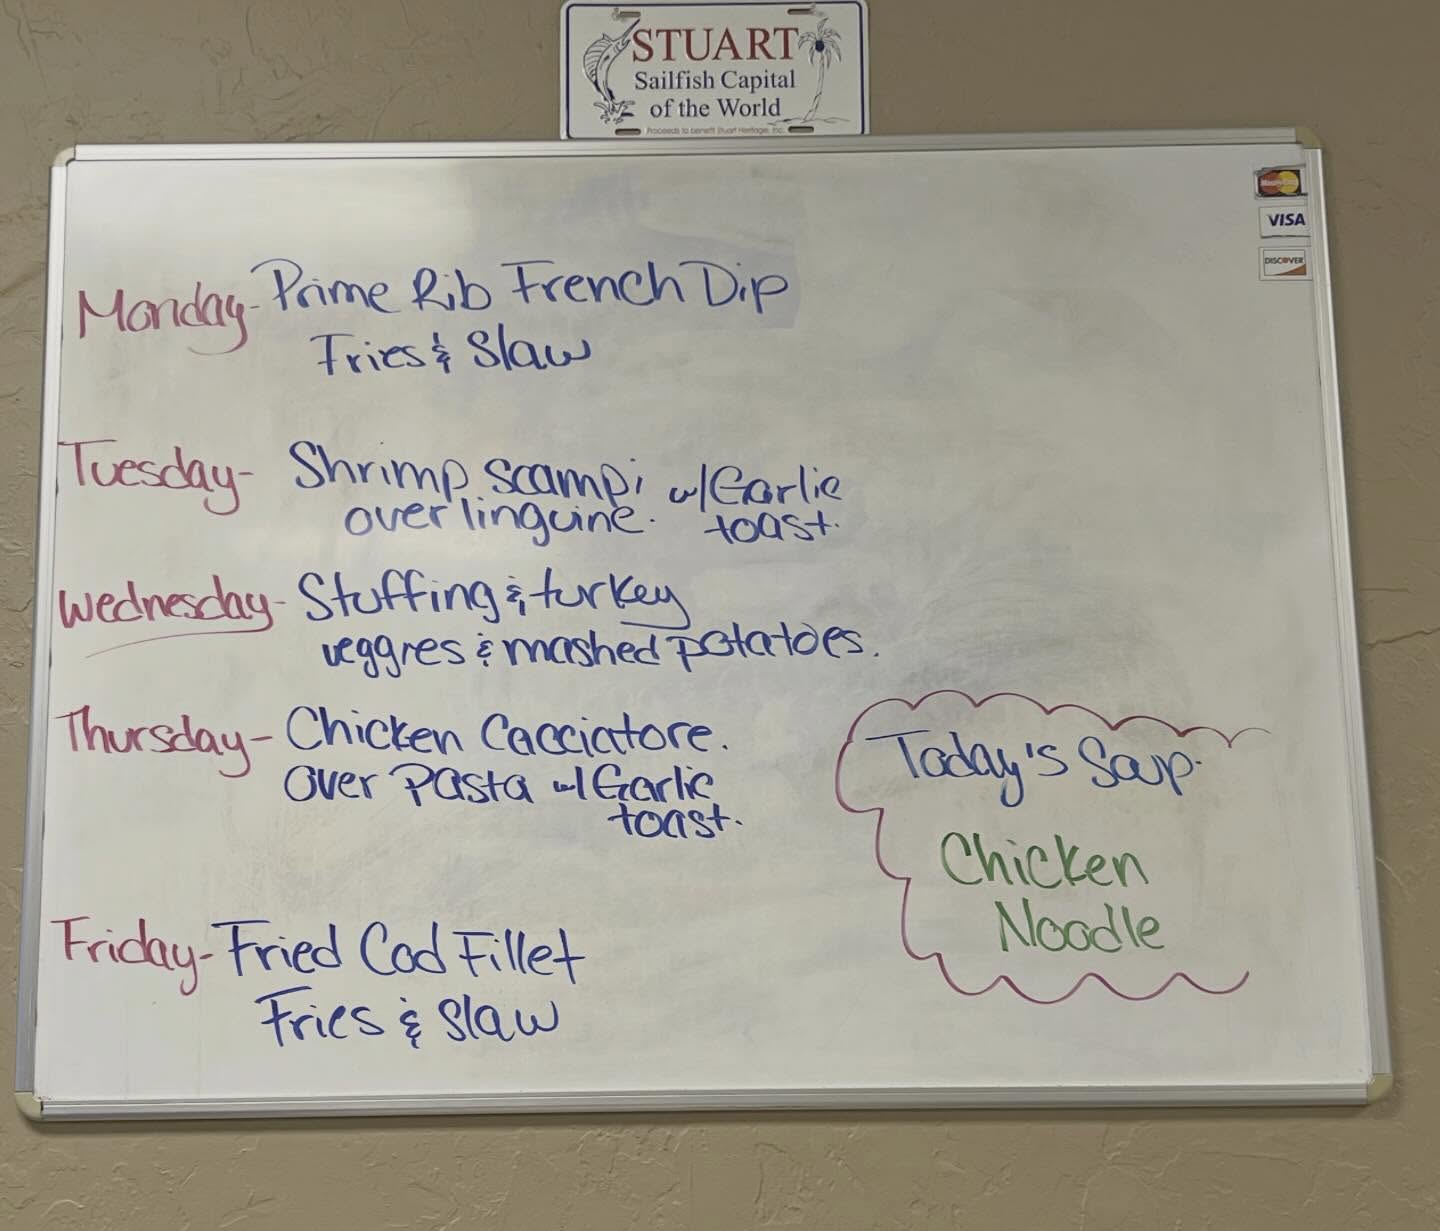 STUART
Sailfish Capital
of the World
Proceeds to benefit Stuart Heritage, Inc.
MasterCard
VISA
DISCOVER
Monday - Prime Rib French Dip
Fries & Slaw
Tuesday - Shrimp scampi w/Garlic
over linguine. toast.
Wednesday - Stuffing & turkey
veggies & mashed potatoes.
Thursday - Chicken Cacciatore.
over Pasta w/Garlic
toast.
Today's Soup.
Chicken
Noodle
Friday - Fried Cod Fillet
Fries & Slaw